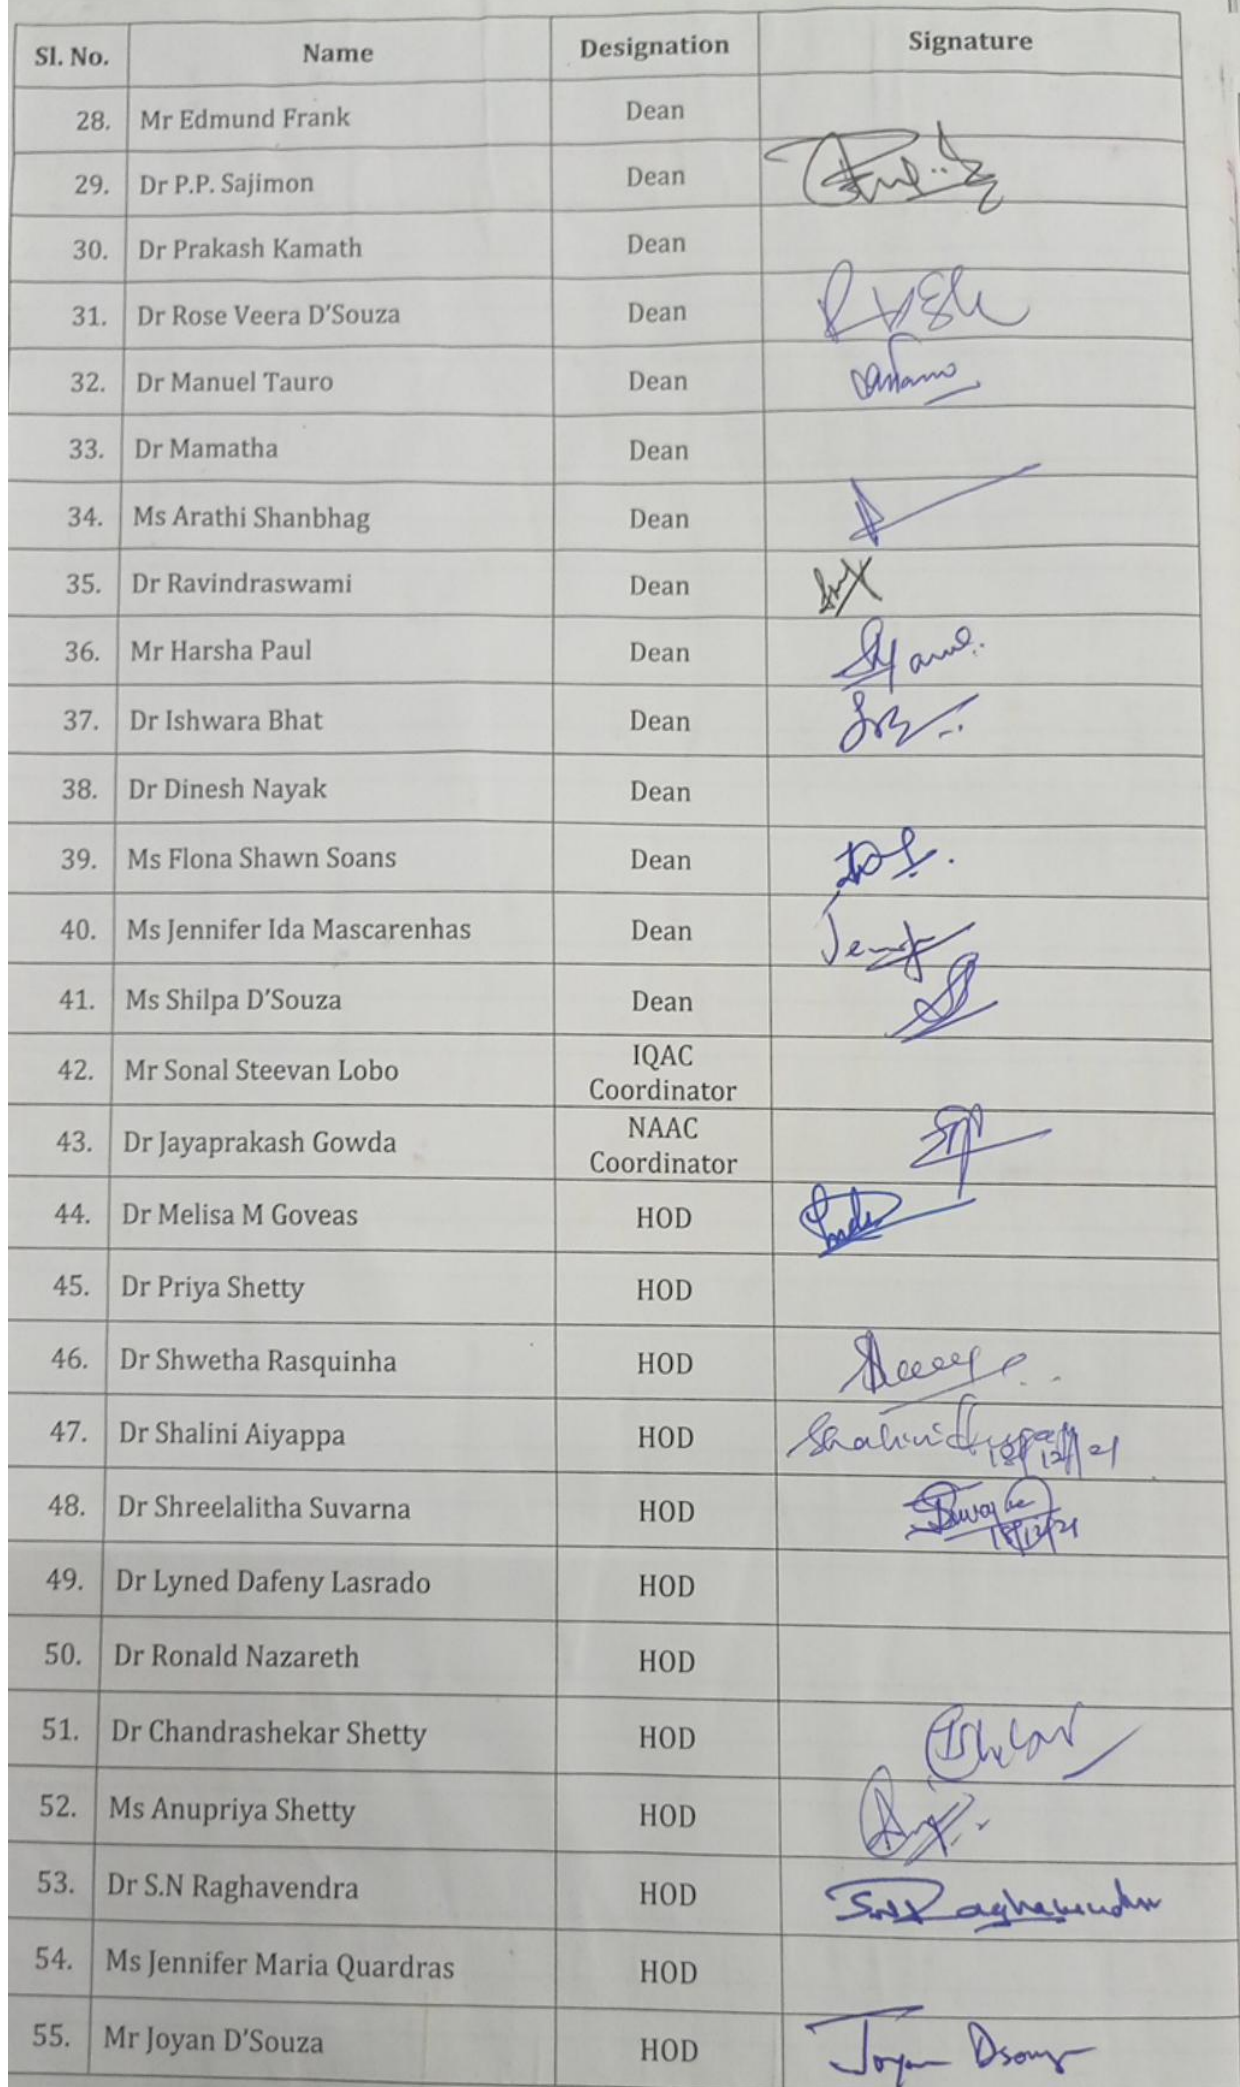 Sl. No. Name Designation Signature
28. Mr Edmund Frank Dean
29. Dr P.P. Sajimon Dean
30. Dr Prakash Kamath Dean
31. Dr Rose Veera D'Souza Dean
32. Dr Manuel Tauro Dean
33. Dr Mamatha Dean
34. Ms Arathi Shanbhag Dean
35. Dr Ravindraswami Dean
36. Mr Harsha Paul Dean
37. Dr Ishwara Bhat Dean
38. Dr Dinesh Nayak Dean
39. Ms Flona Shawn Soans Dean
40. Ms Jennifer Ida Mascarenhas Dean
41. Ms Shilpa D'Souza Dean
42. Mr Sonal Steevan Lobo IQAC
Coordinator
43. Dr Jayaprakash Gowda NAAC
Coordinator
44. Dr Melisa M Goveas HOD
45. Dr Priya Shetty HOD
46. Dr Shwetha Rasquinha HOD
47. Dr Shalini Aiyappa HOD Shalini
18/12/21
48. Dr Shreelalitha Suvarna HOD
18/12/21
49. Dr Lyned Dafeny Lasrado HOD
50. Dr Ronald Nazareth HOD
51. Dr Chandrashekar Shetty HOD
52. Ms Anupriya Shetty HOD
53. Dr S.N Raghavendra HOD S.N Raghavendra
54. Ms Jennifer Maria Quardras HOD
55. Mr Joyan D'Souza HOD Joyan Dsouza